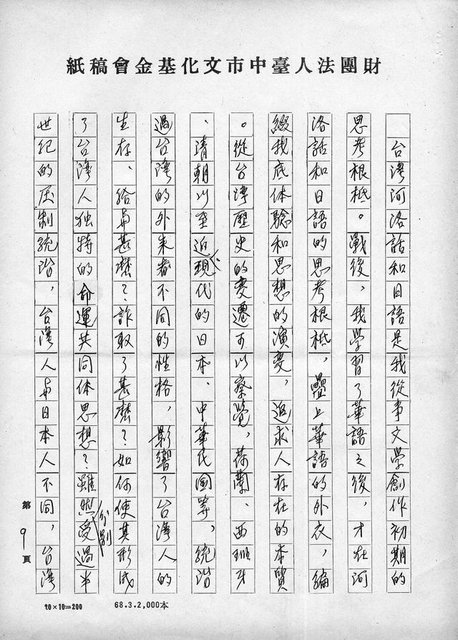 財團法人臺中市文化基金會稿紙
台灣河洛話和日語是我從事文學創作初期的
思考根柢。戰後，我學習了華語之後，才在河
洛話和日語的思考根柢，疊上華語的外衣，編
綴我底体驗和思想的演變，追求人存在的本質
。從台灣歷史的變遷可以察覺，荷蘭、西班牙
、清朝以至近現代的日本、中華民國等，統治
過台灣的外來者不同的性格，影響了台灣人的
生存、給与甚麼？詐取了甚麼？如何使其形成
了台灣人独特的命運共同体思想？雖然分別受過半
世紀的压制統治，台灣人与日本人不同，台灣
第9頁
10×10=200
68.3.2,000本